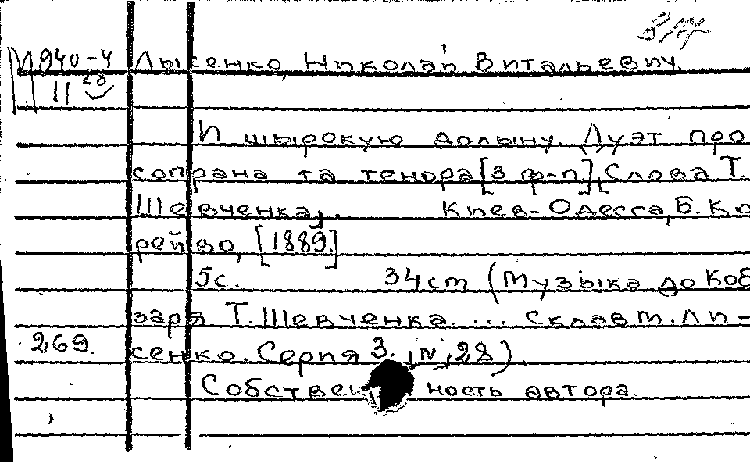 М 940-4 Лысенко, Николай Витальевич
11 28
И шырокую долыну. Дуэт про
сопрана та тенора [з ф-п]. Слова Т.
Шевченка,.. Киев-Одесса, Б. Ко
рейво, [1889.]
5с. 34cm (Музыка до Коб
заря Т. Шевченка.... склав М. Лы-
269. сенко. Серия 3., N, 28)
Собственность автора.